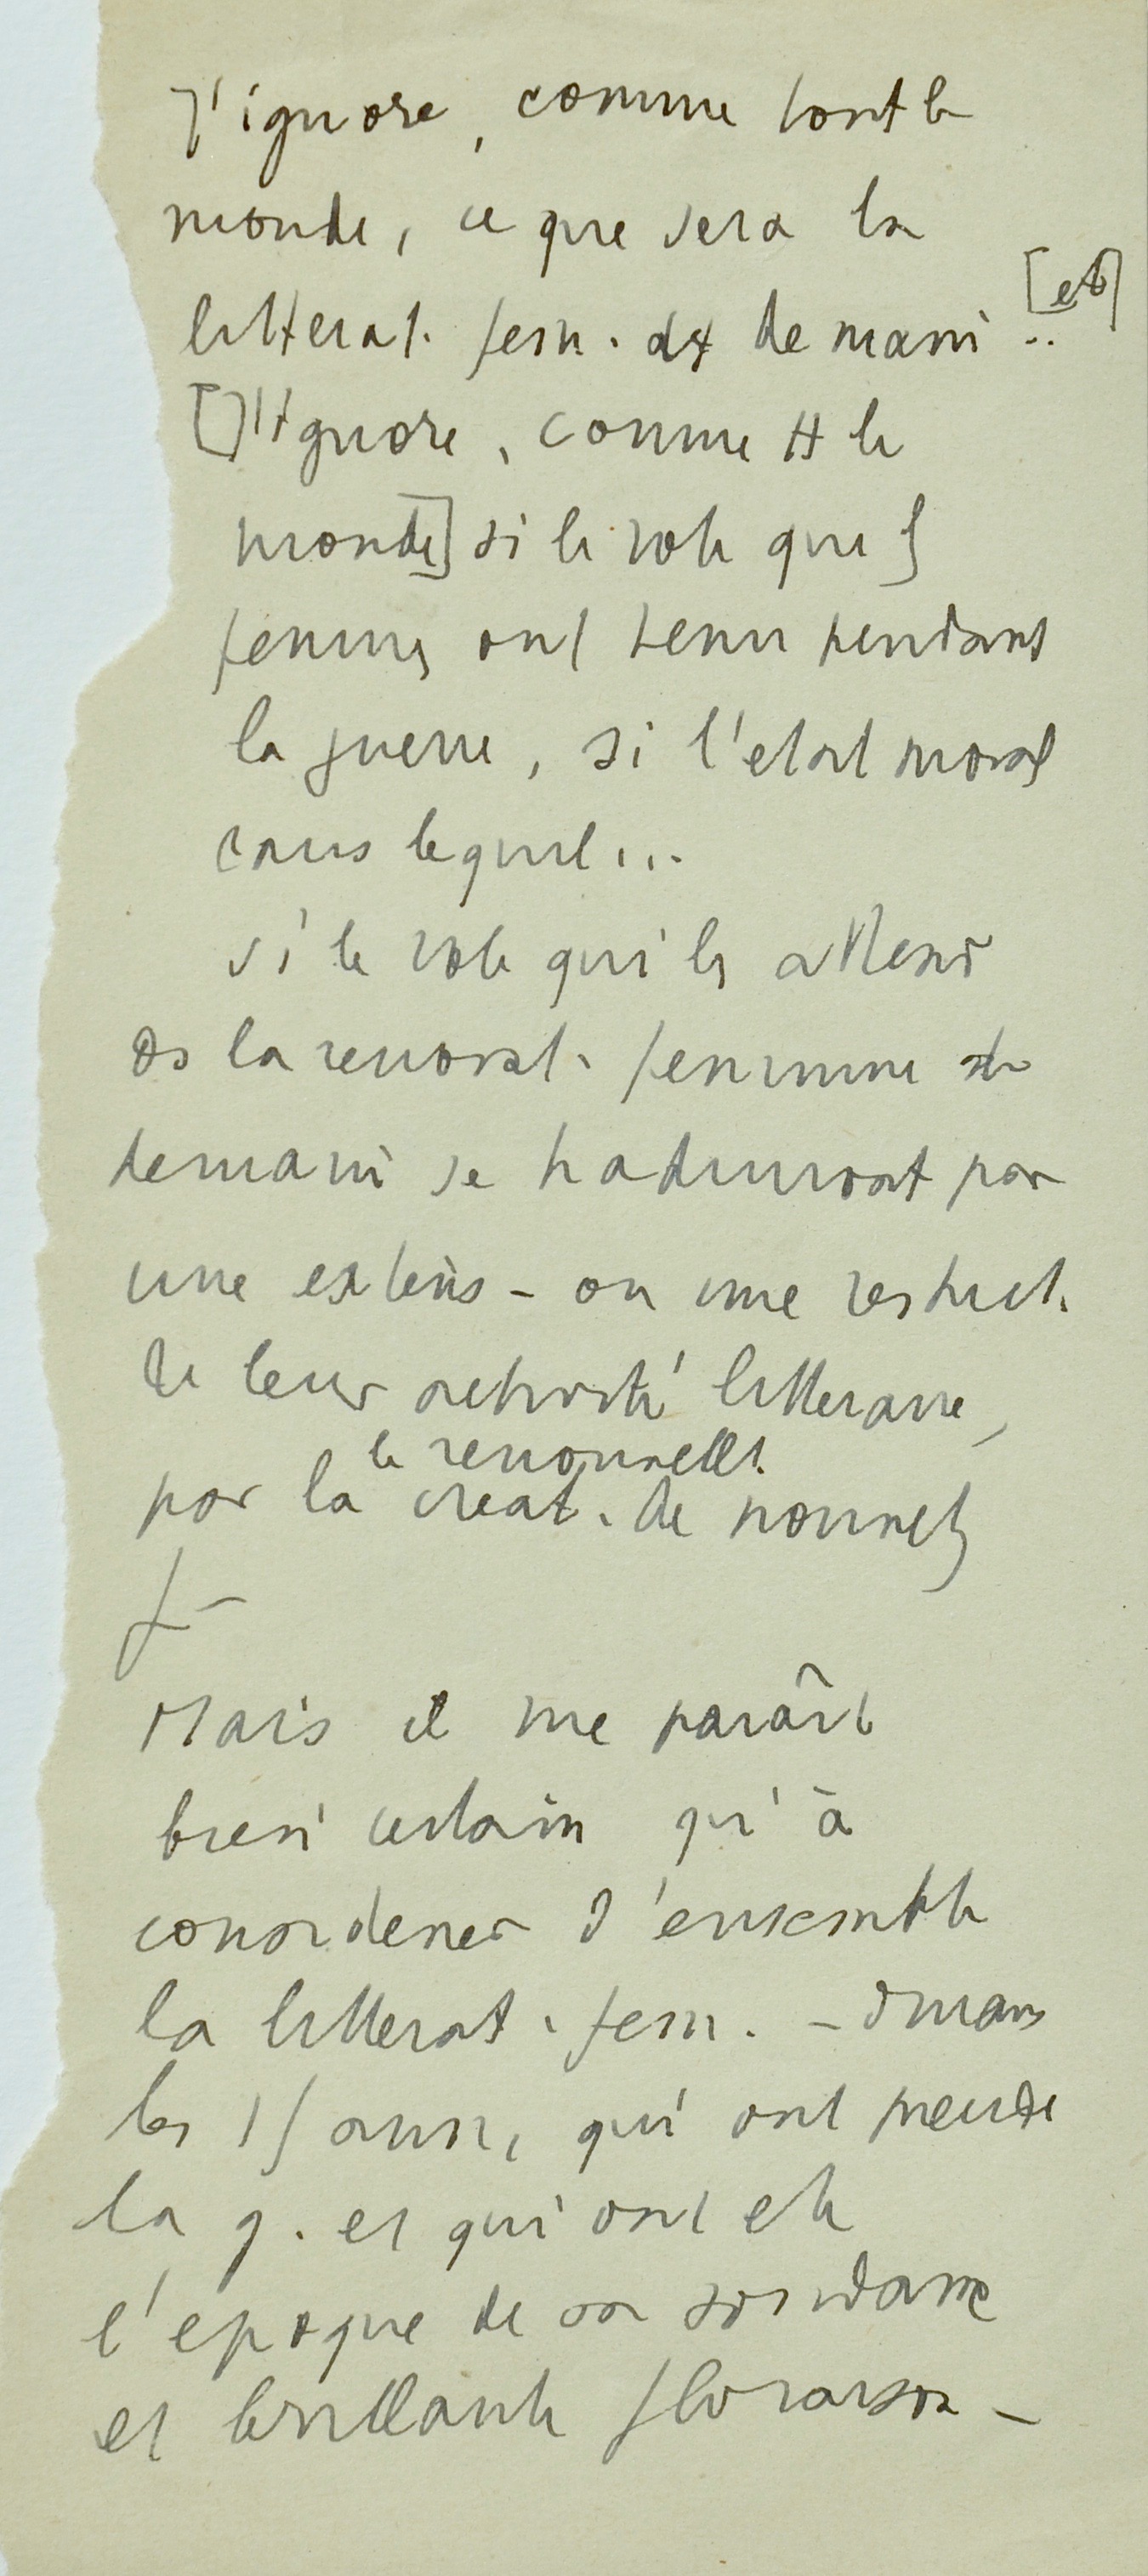 J'ignore, comme tout le
monde, ce que sera la
litterat. fem. de demain.. [et]
[J'ignore, comme tt le
monde] si le role que les
femmes ont tenu pendant
la guerre, si l'etat moral
dans lequel...
si le role qui les attend
ds la renovat. feminine de
demain se traduiront par
une extens - ou une restrict.
de leur activité litteraire,
le renouvellt.
par la creat. de nouvelles
f -
Mais il me paraît
bien certain qu'à
considerer d'ensemble
la litterat. fem. - durant
les 15 ann, qui ont precede
la g. et qui ont ete
l'epoque de sa soudaine
et brillante floraison -